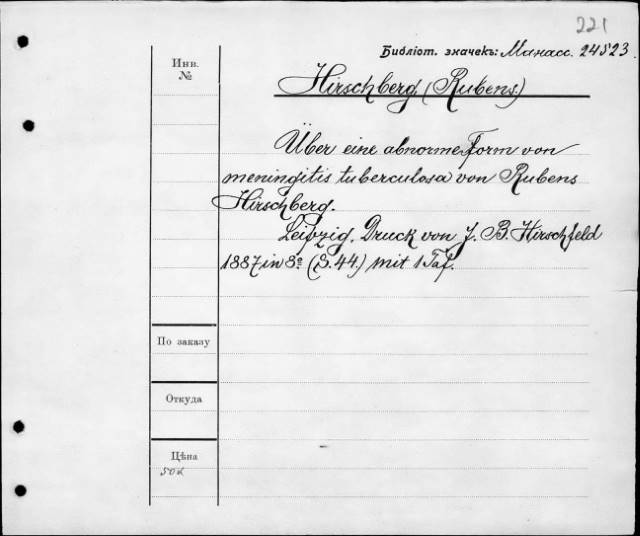 221
Библіот. значекъ: Манасс. 24823.
Инв.
№
Hirschberg (Rubens)
Über eine abnorme Form von
meningitis tuberculosa von Rubens
Hirschberg.
Leipzig. Druck von J. B. Hirschfeld
1887 in 8º (S. 44.) mit 1 Taf.
По заказу
Откуда
Цѣна
50к